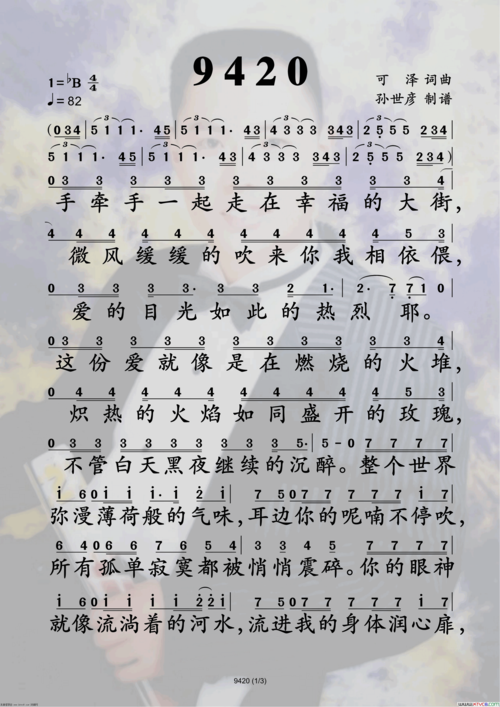 9420
1=♭B 4/4
可 泽 词曲
♩=82
孙世彦 制谱
(034 | 5111· 45 | 5111· 45 | 4333 343 | 2555 234 |
5111· 45 | 5111· 45 | 4333 343 | 2555 234)
0 3 3 3 3 3 3 3 3 3 3 4
手牵手一起走在幸福的大街，
4 4 4 4 4 4 4 4 4 5 3
微风缓缓的吹来你我相依偎，
0 3 3 3 3· 3 3 2 1· | 2· 7 7 1 0
爱的目光如此的热烈 耶。
0 3 3 3 3 3 3 3 3 3 3 4
这份爱就像是在燃烧的火堆，
0 4 4 4 4 4 4 4 4 4 5 3
炽热的火焰如同盛开的玫瑰，
0 3 3 3 3 3 3 3 3 3 3 5· | 5 - 0 7 7 7 7
不管白天黑夜继续的沉醉。整个世界
i 6 0 i i i· i 2 i | 7 5 0 7 7 7 7 i 7
弥漫薄荷般的气味，耳边你的呢喃不停吹，
6 4 0 6 6 7 6 5 4 | 3 3 4 5 7 7 7 7
所有孤单寂寞都被悄悄震碎。你的眼神
i 6 0 i i i i 2 2 i | 7 5 0 7 7 7 7 i 7
就像流淌着的河水，流进我的身体润心扉，
9420 (1/3)